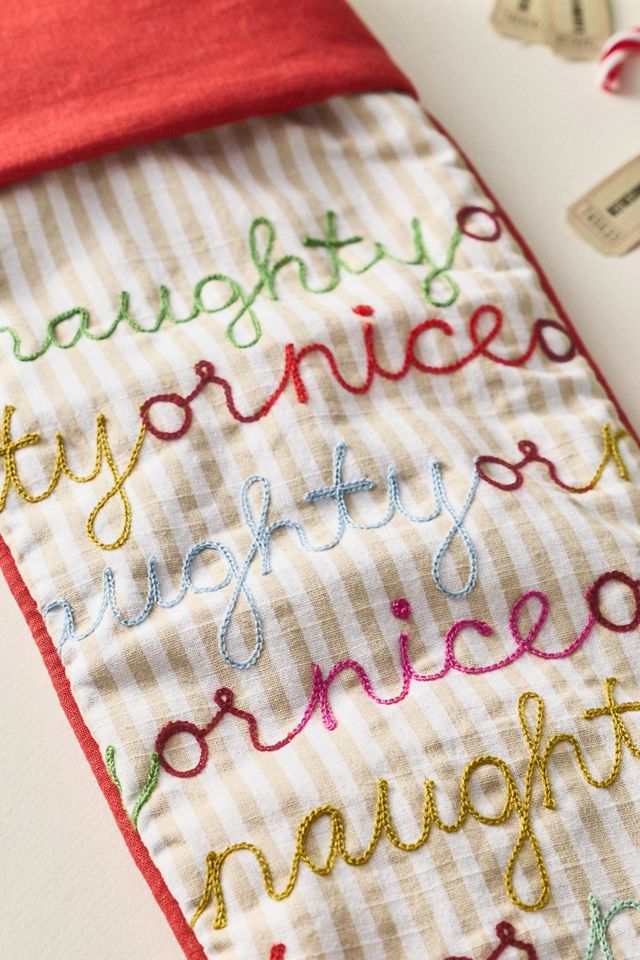 naughty o
ty or nice o
aughty or n
y or nice o
naught